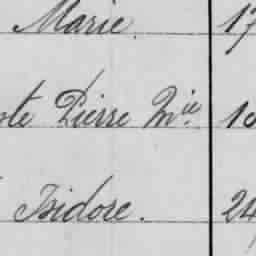 Marie. 17
te Pierre Mie 10
Isidore. 24